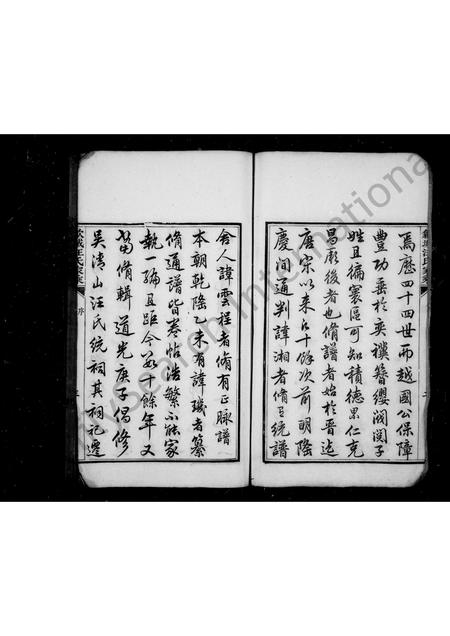 焉歷四十四世而越國公保障
豐功垂於奕禩簪纓閥閱子
姓且徧寰區可知積德累仁克
昌厥後者也脩譜者始於晉迄
唐宋以來凡十餘次前明隆
慶間通判諱湘者脩有統譜
舍人諱雲程者脩有正脉譜
本朝乾隆乙未有諱璣者纂
脩通譜皆卷帖浩繁不能家
執一編且距今數十餘年又
當脩輯道光庚子倡修
吳清山汪氏統祠其祠記遷
序
MyHeritage
International